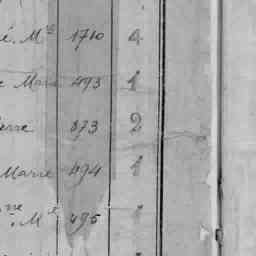 é. Mᵉ 1710 4
e Marie 493 1
erre 873 2
Marie 494 1
ne. Mᵉ 495 1